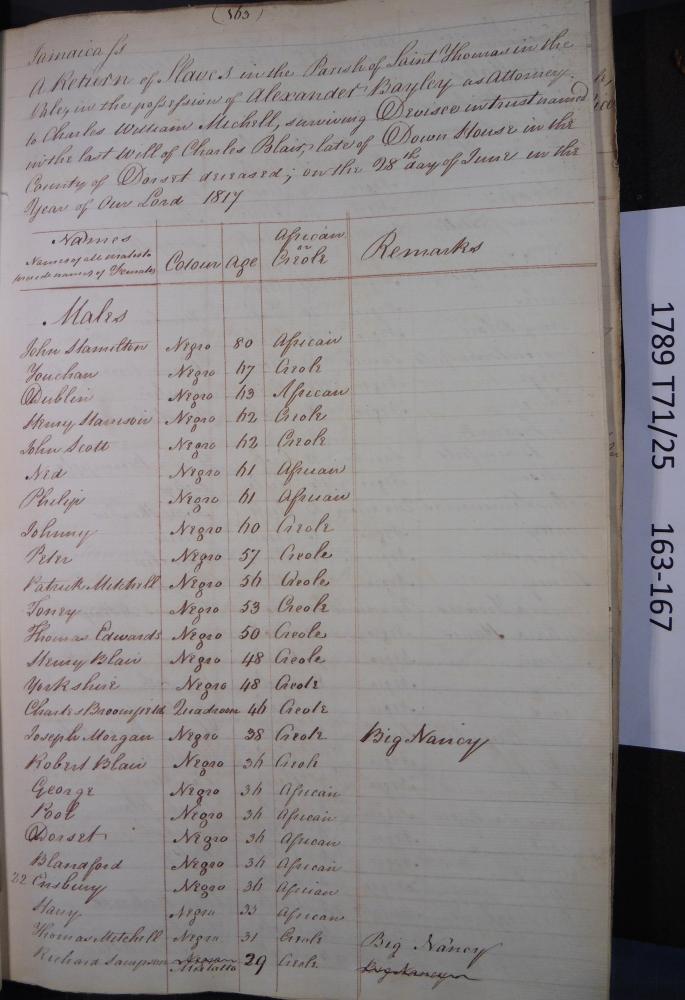 (163)
Jamaica Ss
A Return of Slaves in the Parish of Saint Thomas in the
Vale, in the possession of Alexander Bayley as Attorney
to Charles William Michell, surviving Devisee in trust named
in the last Will of Charles Blair, late of Down House in the
County of Dorset deceased; on the 28th day of June in the
Year of Our Lord 1817
Names Colour Age African or Creole Remarks
Males
John Hamilton Negro 80 African
Negro 67 Creole
Dublin Negro 63 African
Henry Harrison Negro 62 Creole
John Scott Negro 62 Creole
Ned Negro 61 African
Philip Negro 61 African
Johnny Negro 60 Creole
Peter Negro 57 Creole
Patrick Mitchell Negro 56 Creole
Toney Negro 53 Creole
Thomas Edwards Negro 50 Creole
Henry Blair Negro 48 Creole
Yorkshire Negro 48 Creole
Charles Broomfield Quadroon 46 Creole
Joseph Morgan Negro 38 Creole Big Nancy
Robert Blair Negro 36 Creole
George Negro 36 African
Pool Negro 36 African
Dorset Negro 36 African
Blandford Negro 36 African
22 Ensbury Negro 36 African
Harry Negro 33 African
Thomas Mitchell Negro 31 Creole Big Nancy
Richard Sampson Mulatto 29 Creole
1789 T71/25 163-167